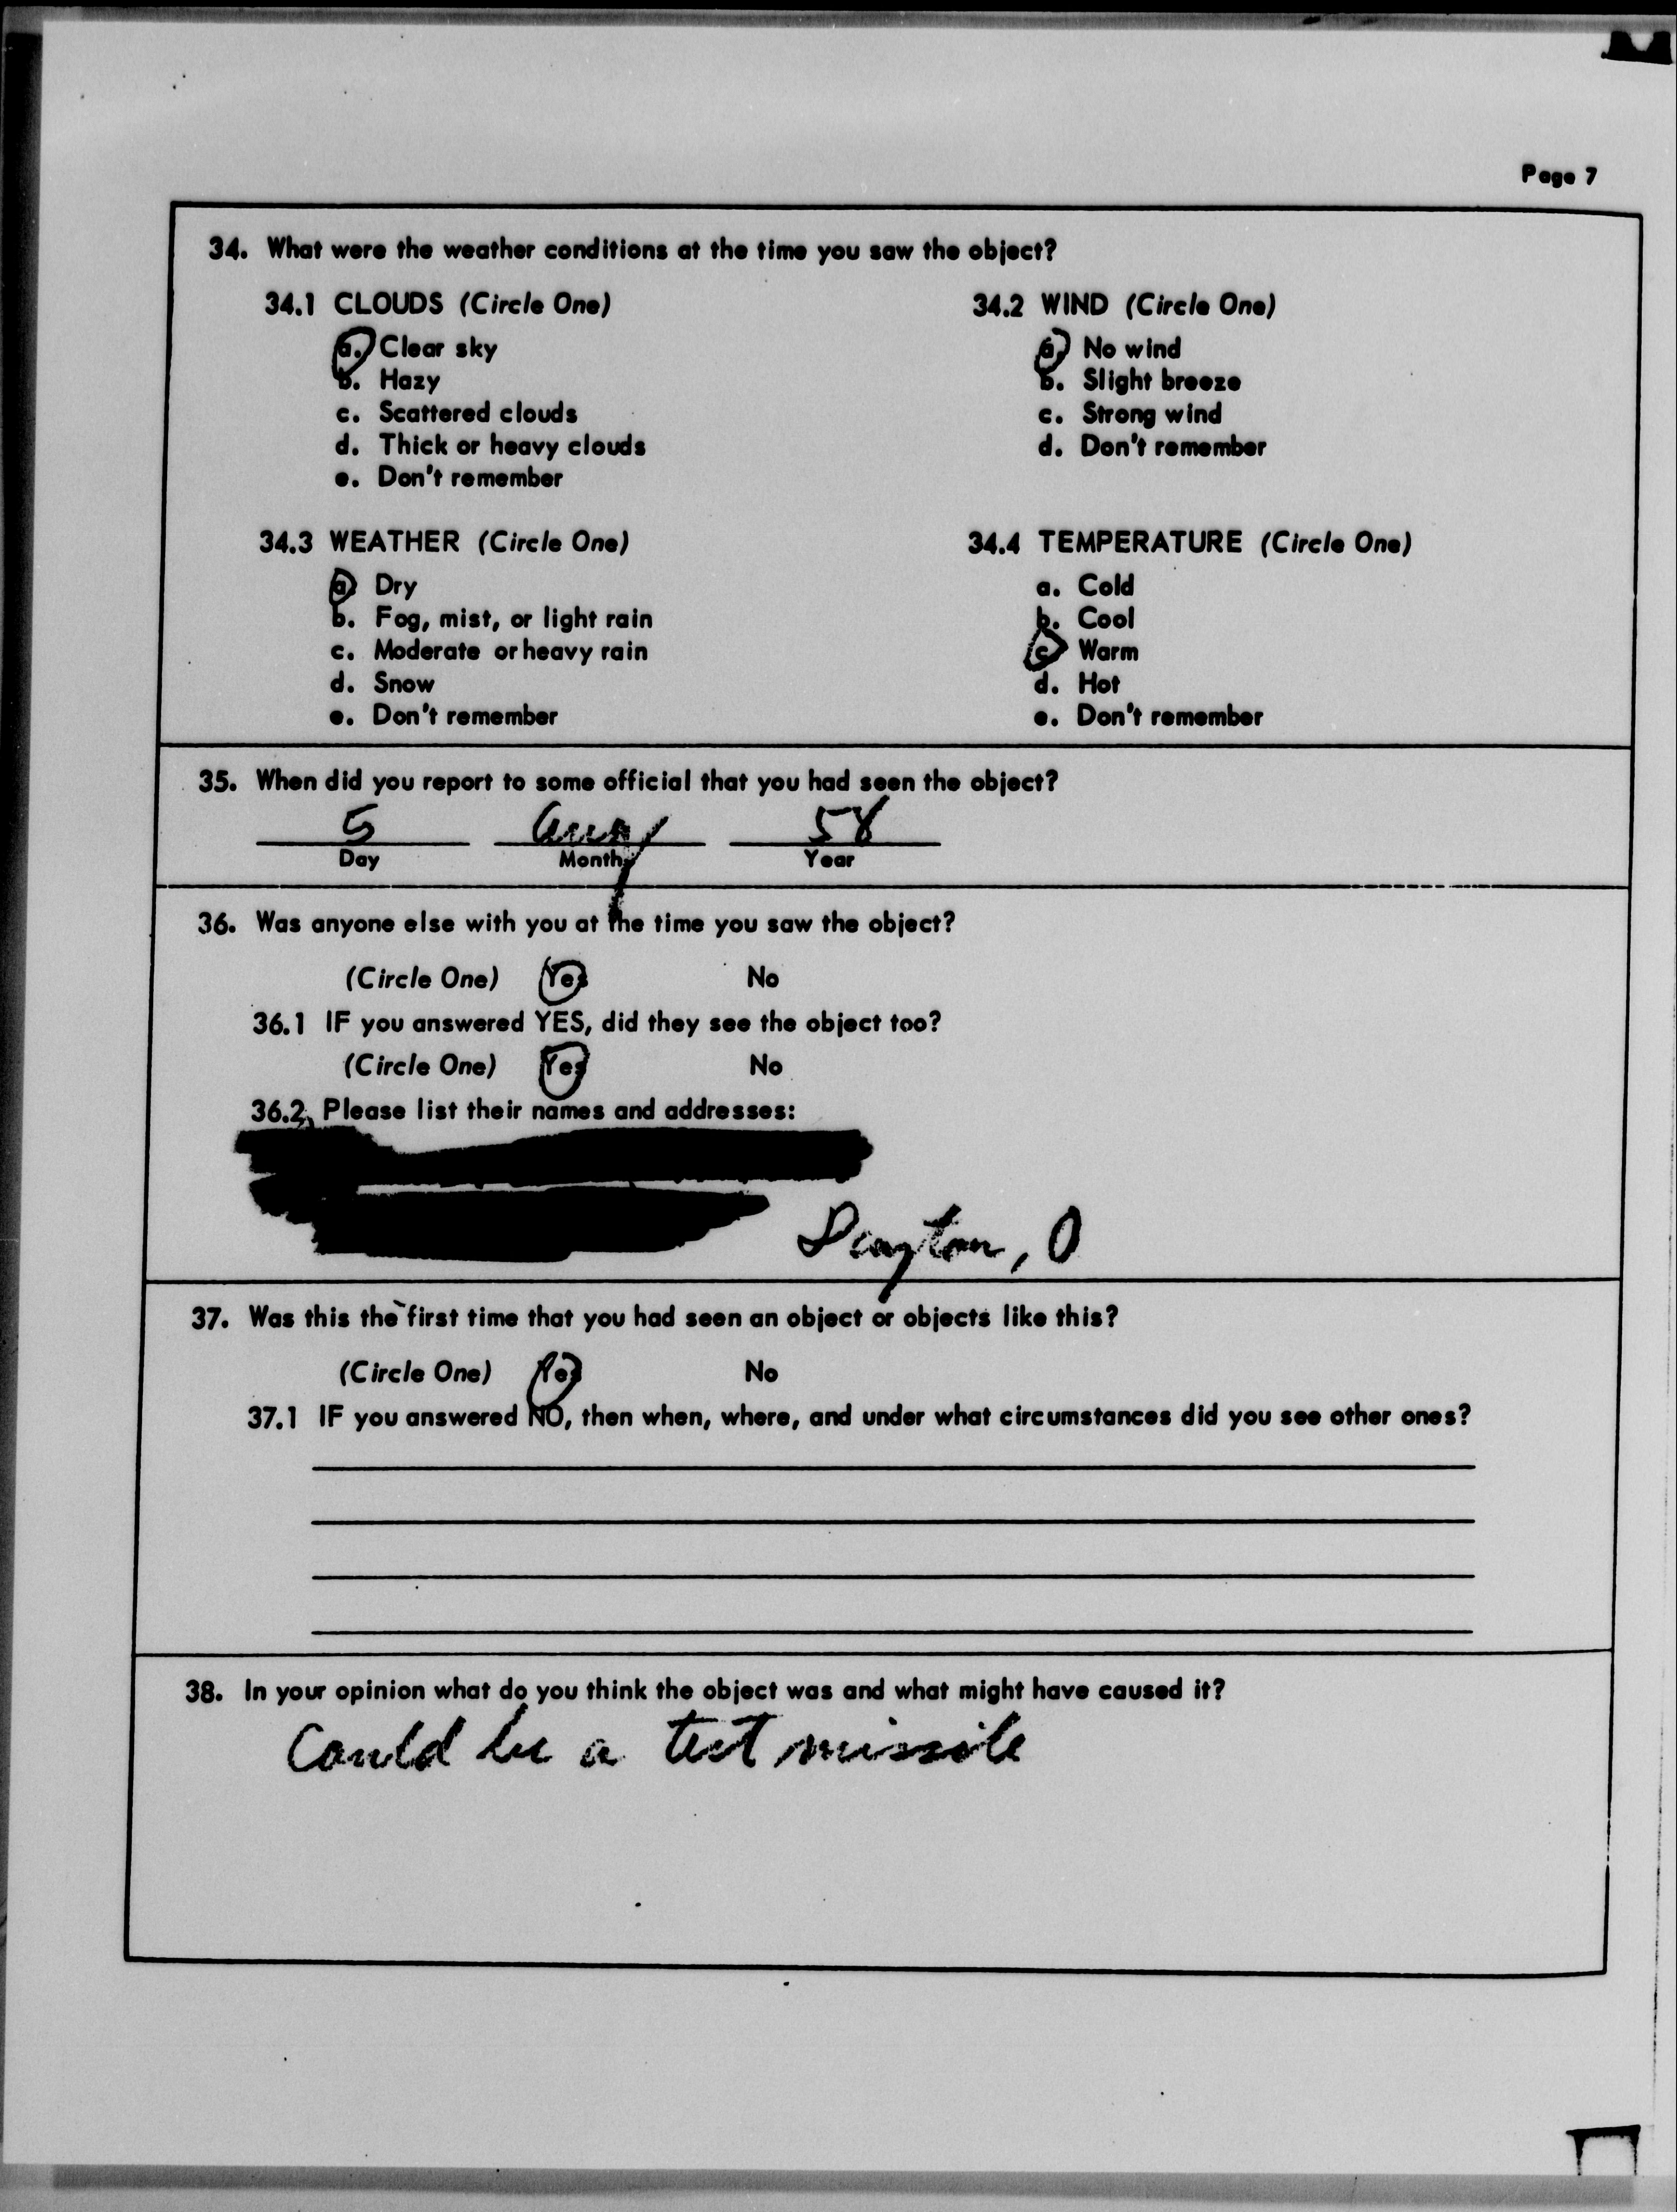 Page 7
34. What were the weather conditions at the time you saw the object?
34.1 CLOUDS (Circle One)
a. Clear sky
b. Hazy
c. Scattered clouds
d. Thick or heavy clouds
e. Don't remember
34.2 WIND (Circle One)
a. No wind
b. Slight breeze
c. Strong wind
d. Don't remember
34.3 WEATHER (Circle One)
a. Dry
b. Fog, mist, or light rain
c. Moderate or heavy rain
d. Snow
e. Don't remember
34.4 TEMPERATURE (Circle One)
a. Cold
b. Cool
c. Warm
d. Hot
e. Don't remember
35. When did you report to some official that you had seen the object?
5 Aug 58
Day Month Year
36. Was anyone else with you at the time you saw the object?
(Circle One) Yes No
36.1 IF you answered YES, did they see the object too?
(Circle One) Yes No
36.2 Please list their names and addresses:
Dayton, O
37. Was this the first time that you had seen an object or objects like this?
(Circle One) Yes No
37.1 IF you answered NO, then when, where, and under what circumstances did you see other ones?
38. In your opinion what do you think the object was and what might have caused it?
Could be a test missile